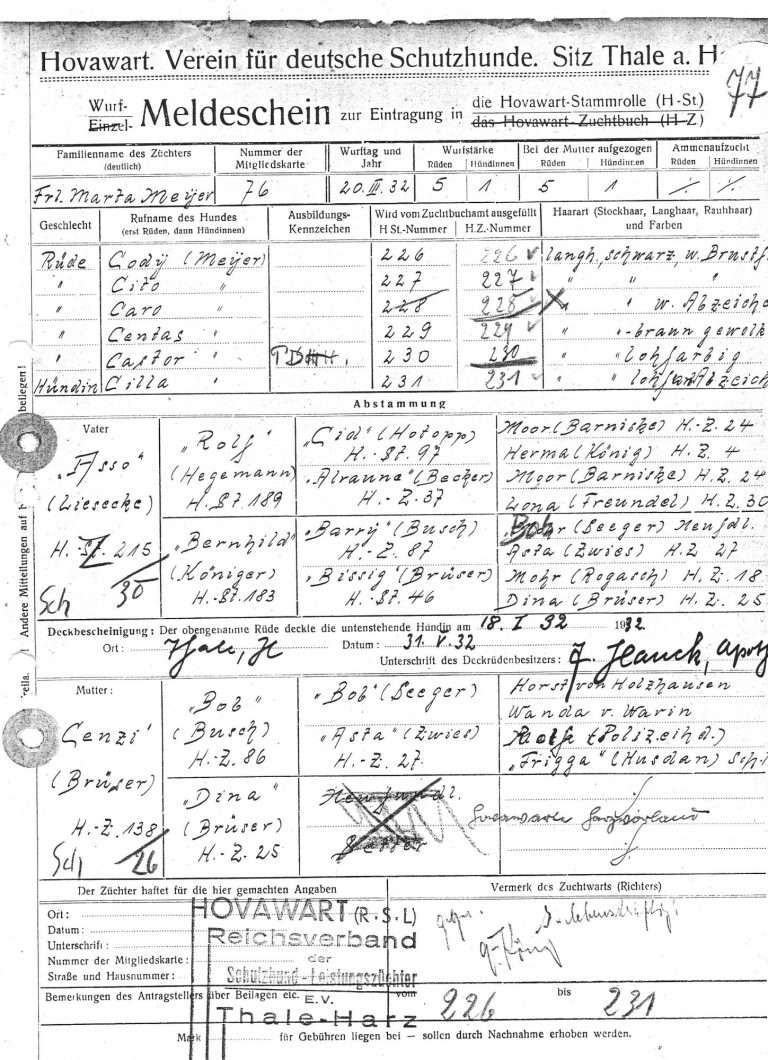 Hovawart. Verein für deutsche Schutzhunde. Sitz Thale a. H
77
Wurf- Einzel- Meldeschein zur Eintragung in die Hovawart-Stammrolle (H-St.)
das Hovawart-Zuchtbuch (H-Z)
Familienname des Züchters (deutlich) Nummer der Mitgliedskarte Wurftag und Jahr Wurfstärke Rüden Hündinnen Bei der Mutter aufgezogen Rüden Hündinnen Ammenaufzucht Rüden Hündinnen
Frl. Marta Meyer 76 20. III. 32 5 1 5 1 ٪ ٪
Geschlecht Rufname des Hundes (erst Rüden, dann Hündinnen) Ausbildungs-Kennzeichen Wird vom Zuchtbuchamt ausgefüllt H St.-Nummer H.Z.-Nummer Haarart (Stockhaar, Langhaar, Rauhhaar) und Farben
Rüde Cody (Meyer) 226 226 langh., schwarz, w. Brustf
" Cito " 227 227 " "
" Caro " 228 228 " " w. Abzeiche
" Centas " 229 229 " "-braun gewolk
" Castor " 230 230 " " lohfarbig
Hündin Cilla " 231 231 " " Abzeich
Abstammung
Vater
"Asso"
(Liesecke)
H. 215
Sch 30
"Rolf"
(Hegemann)
H. St. 189
"Bernhild"
(Königer)
H.-St. 183
"Cid" (Hotopp)
H.-St. 97
"Alraune" (Becker)
H.-Z. 37
"Barry" (Busch)
H.-Z. 87
"Bissig" (Brüser)
H.-St. 46
Moor (Barniske) H.-Z. 24
Herma (König) H.Z. 4
Moor (Barniske) H.Z. 24
Lona (Freundel) H.Z. 30
Bob (Seeger) Neufdl.
Asta (Zwies) H.Z 27
Mohr (Rogasch) H.Z. 18
Dina (Brüser) H.Z. 25
Andere Mitteilungen auf
beilegen!
Deckbescheinigung: Der obengenannte Rüde deckte die untenstehende Hündin am 18. I 32 1932
Ort: Thale, H Datum: 31. V. 32
Unterschrift des Deckrüdenbesitzers: F. Hauck, Apoth
Mutter:
Cenzi
(Brüser)
H.-Z. 138
Sch 26
"Bob"
(Busch)
H.-Z. 86
"Dina"
(Brüser)
H.-Z. 25
"Bob" (Seeger)
"Asta" (Zwies)
H.-Z. 27.
Horst von Holzhausen
Wanda v. Warin
(Polizeihd.)
"Frigga" (Husdan) Sch.
Hovawarte Harzvorland
Der Züchter haftet für die hier gemachten Angaben Vermerk des Zuchtwarts (Richters)
Ort:
Datum:
Unterschrift:
Nummer der Mitgliedskarte:
Straße und Hausnummer:
HOVAWART (R.S.L)
Reichsverband
der
Schutzhund-Leistungszüchter
E.V.
Thale-Harz
gez.
g. König
Bemerkungen des Antragstellers über Beilagen etc. vom 226 bis 231
Mark für Gebühren liegen bei — sollen durch Nachnahme erhoben werden.